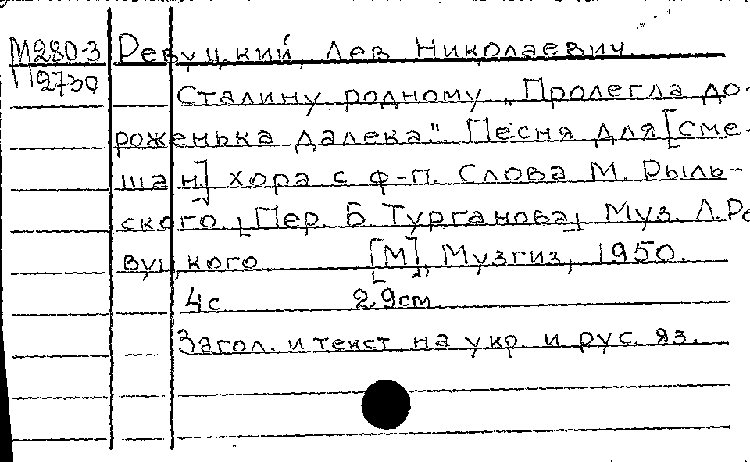 М280-3 Ревуцкий, Лев Николаевич.
112730
Сталину родному „Пролегла до-
роженька далека." Песня для [сме-
шан] хора с ф-п. Слова М. Рыль-
ского [Пер. Б. Турганова] Муз. Л. Ре
вуцкого. [М], Музгиз, 1950.
4с 29см
Загол. и текст на укр. и рус. яз.